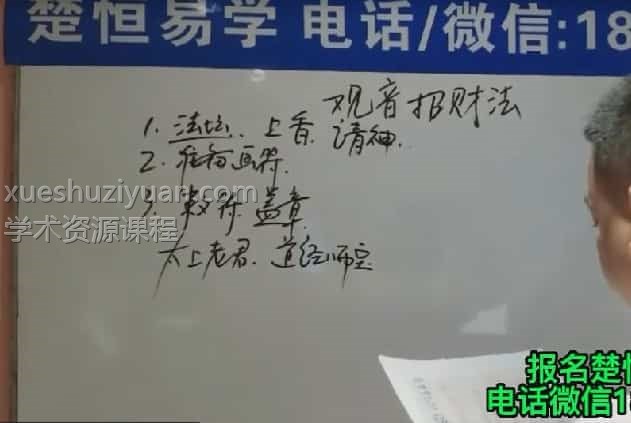 楚恒易学 电话/微信:18
观音招财法
1. 法坛. 上香 请神.
2. 画符.
3. 敕符 盖章
太上老君. 道经师宝
xueshuziyuan.com
学术资源课程
报名楚恒
电话微信1